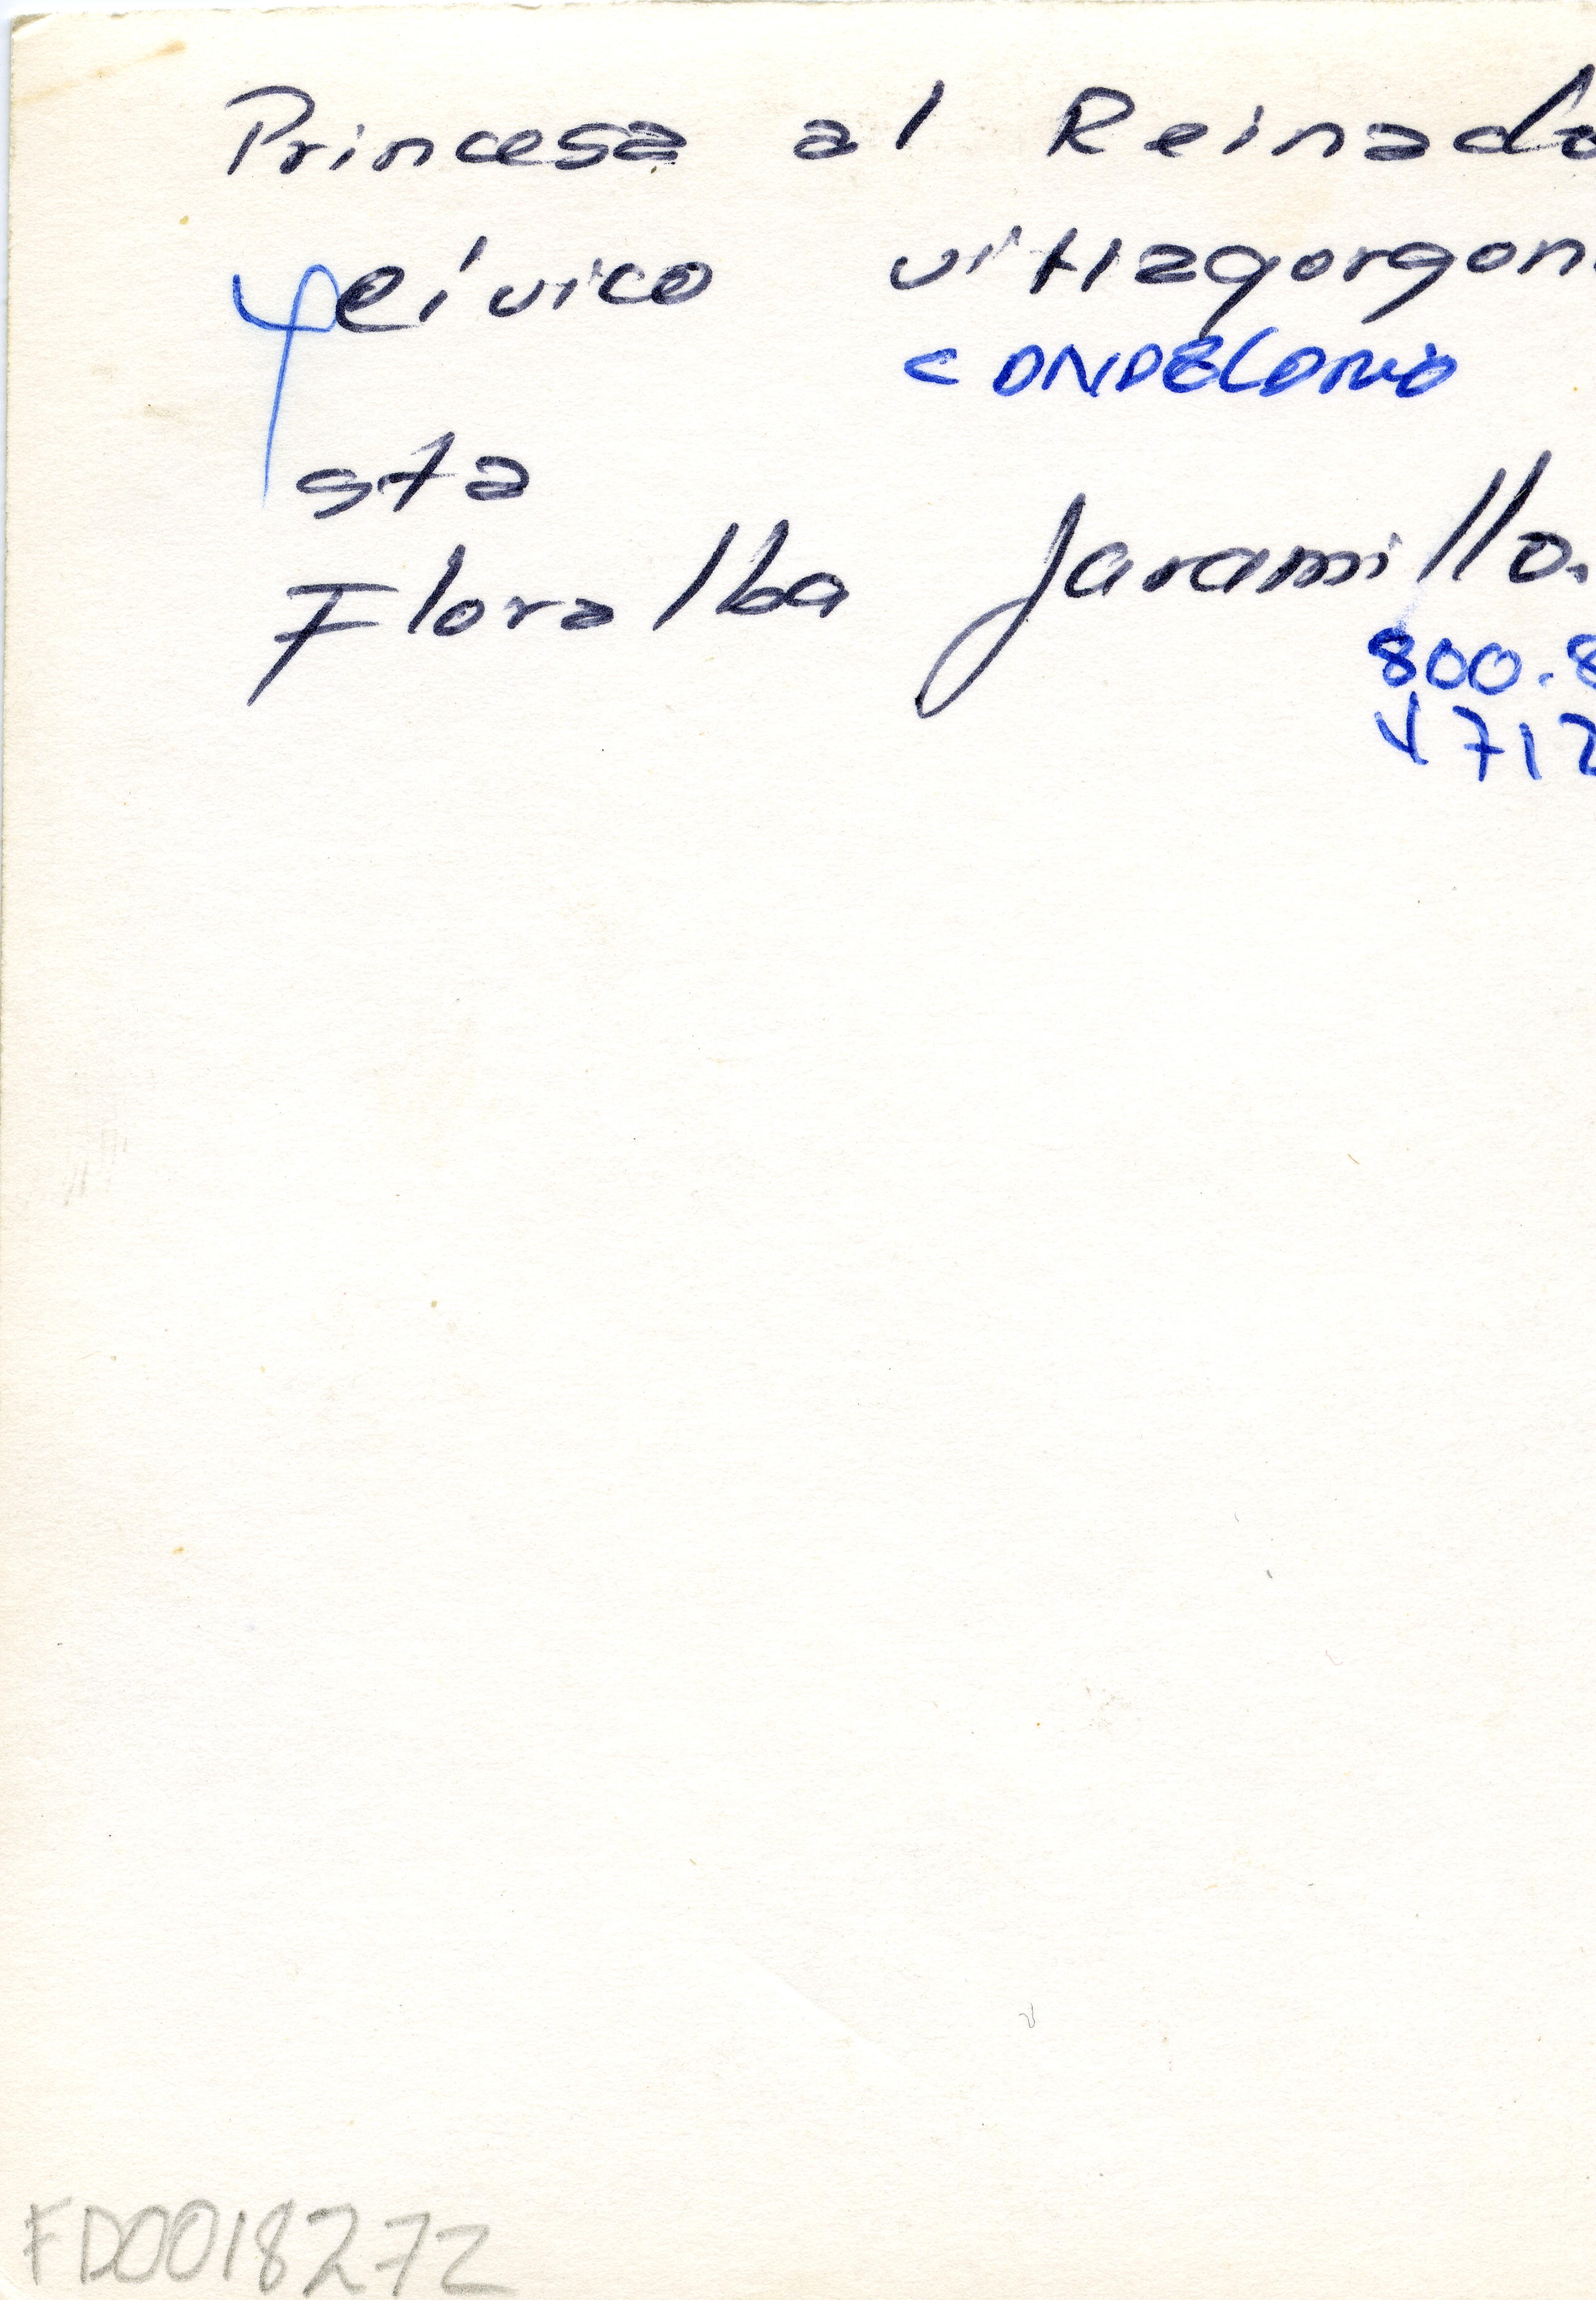 Princesa al Reinado
eívico vittagorgon
CANDELARIA
sta
Floralba Jaramillo.
800.8
V 712
FD0018272